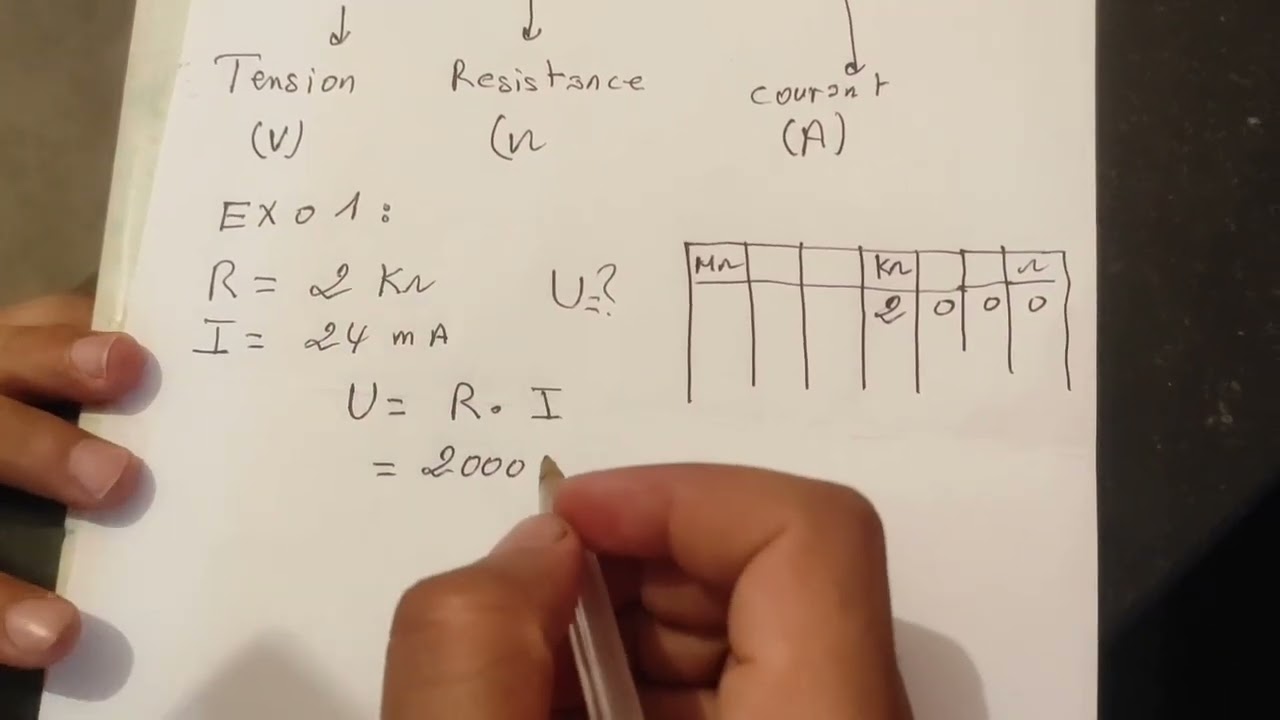 Tension Resistance courant
(V) (Ω (A)
EXO 1:
R = 2 KΩ U=?
I = 24 mA
MΩ KΩ Ω
2 0 0 0
U = R. I
= 2000